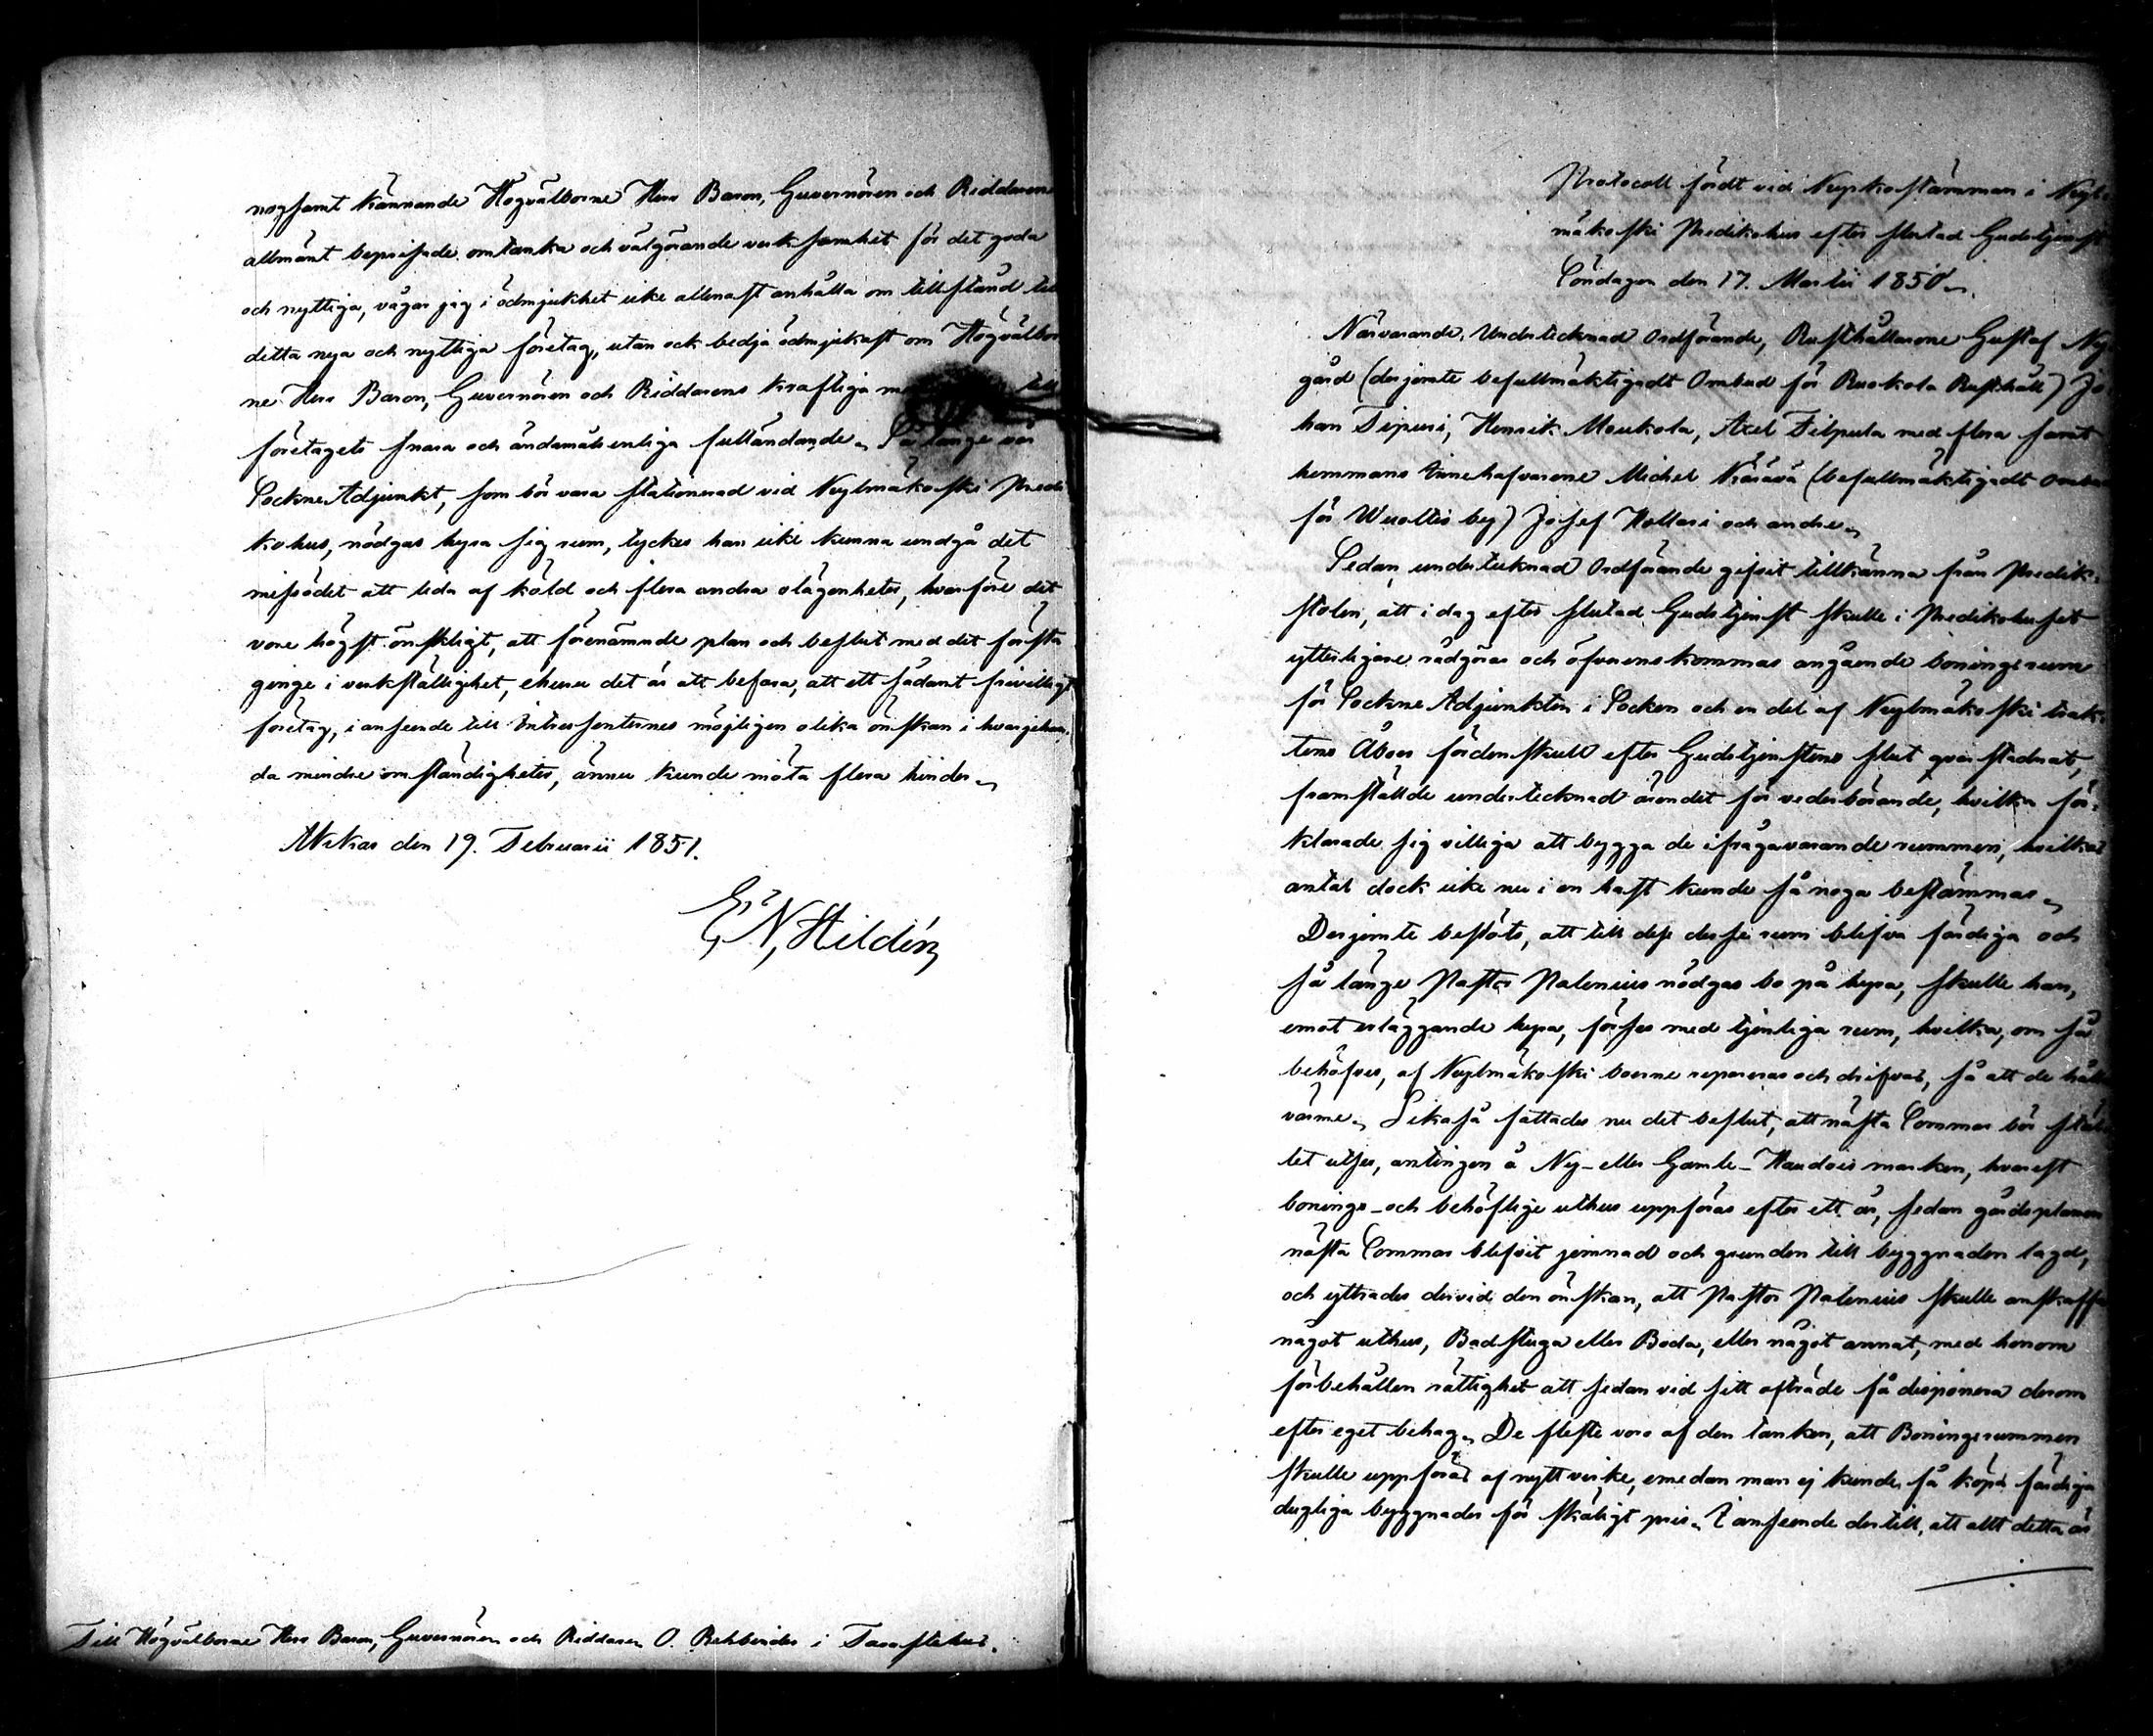 nogsamt kännande Högvälborne Herr Baron, Guvernören och Riddarens
allmänt beprisade omtanka och välgörande verksamhet för det goda
och nyttiga, vågar jag i ödmjukhet icke allenast anhålla om tillstånd till
detta nya och nyttiga företag, utan ock bedja ödmjukast om Högvälbor
ne Herr Baron, Guvernören och Riddarens kraftiga till
företagets snara och ändamålsenliga fulländande. Så länge vår
Sockne Adjunkt, som bör vara stationerad vid Kuhmäkoski Predi
kohus, nödgas hyra sig rum, tyckes han icke kunna undgå det
missödet att lida af köld och flera andra olägenheter, hvarföre det
vore högst önskligt, att förenämnde plan och beslut med det första
ginge i verkställighet, ehuru det är att befara, att ett sådant frivilligt
företag, i anseende till Intressenternes möjligen olika önskan i hvarjehan,
da mindre omständigheter, ännu kunde möta flera hinder.
Akkas den 19. Februarii 1851.
E. N. Hildén
Till Högvälborne Herr Baron, Guvernören och Riddaren O. Rehbinder i Tavastehus.
Protocoll fördt vid Kyrkostämman i Kuhl
mäkoski Predikohus efter slutad Gudstjenst
Söndagen den 17. Martii 1850.
Närvarande, Undertecknad Ordförande, Rusthållarne Gustaf Ny
gård (derjemte befullmäktigadt Ombud för Ruokola Rusthåll) Jo
han Sipusi, Henrik Moukola, Axel Filpula med flera samt
hemmans Innehafvarene Michel Kärävä (befullmäktigadt Ombud
för Wuoltis by) Josef Hollari och andre.
Sedan undertecknad Ordförande gifvit tillkänna från Predik,
stolen, att i dag efter slutad Gudstjenst skulle i Predikohuset
ytterligare rådgöras och öfverenskommas angående boningsrum
för Sockne Adjunkten i Socken och en del af Kuhlmäkoski trak,
tens Åboer fördenskull efter Gudstjenstens slut qvarstadnat,
framställde undertecknad ärendet för vederbörande, hvilka för,
klarade sig villiga att bygga de ifrågavarande rummen, hvilkas
antal dock icke nu i en hast kunde så noga bestämmas.
Derjemte beslöts, att till dess desse rum blifva färdiga och
så länge Pastor Palenius nödgas bo på hyra, skulle han,
emot erläggande hyra, förses med tjenliga rum, hvilka, om så
behöfves, af Kuhlmäkoski boerne repareras och drifvas, så att de hålla
värme. Likaså fattades nu det beslut, att nästa Sommar bör stäl
let utses, antingen å Ny- eller Gamle- Haudois marken, hvarest
bonings- och behöflige uthus uppföras efter ett år, sedan gårdsplanen
nästa Sommar blifvit jemnad och grunden till byggnaden lagd,
och yttrades dervid den önskan, att Pastor Palenius skulle anskaffa
något uthus, Badstuga eller Boda, eller något annat, med honom
förbehållen rättighet att sedan vid sitt afträde få disponera derom
efter eget behag. De fleste voro af den tanken, att Boningsrummen
skulle uppföras af nytt virke, emedan man ej kunde få köpa färdiga
dugliga byggnader för skäligt pris. I anseende dertill, att allt detta är